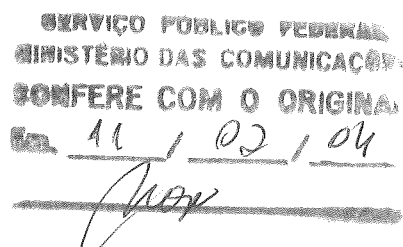 SERVIÇO PÚBLICO FEDERAL
MINISTÉRIO DAS COMUNICAÇÕES
CONFERE COM O ORIGINAL
Em, 11 / 02 / 04